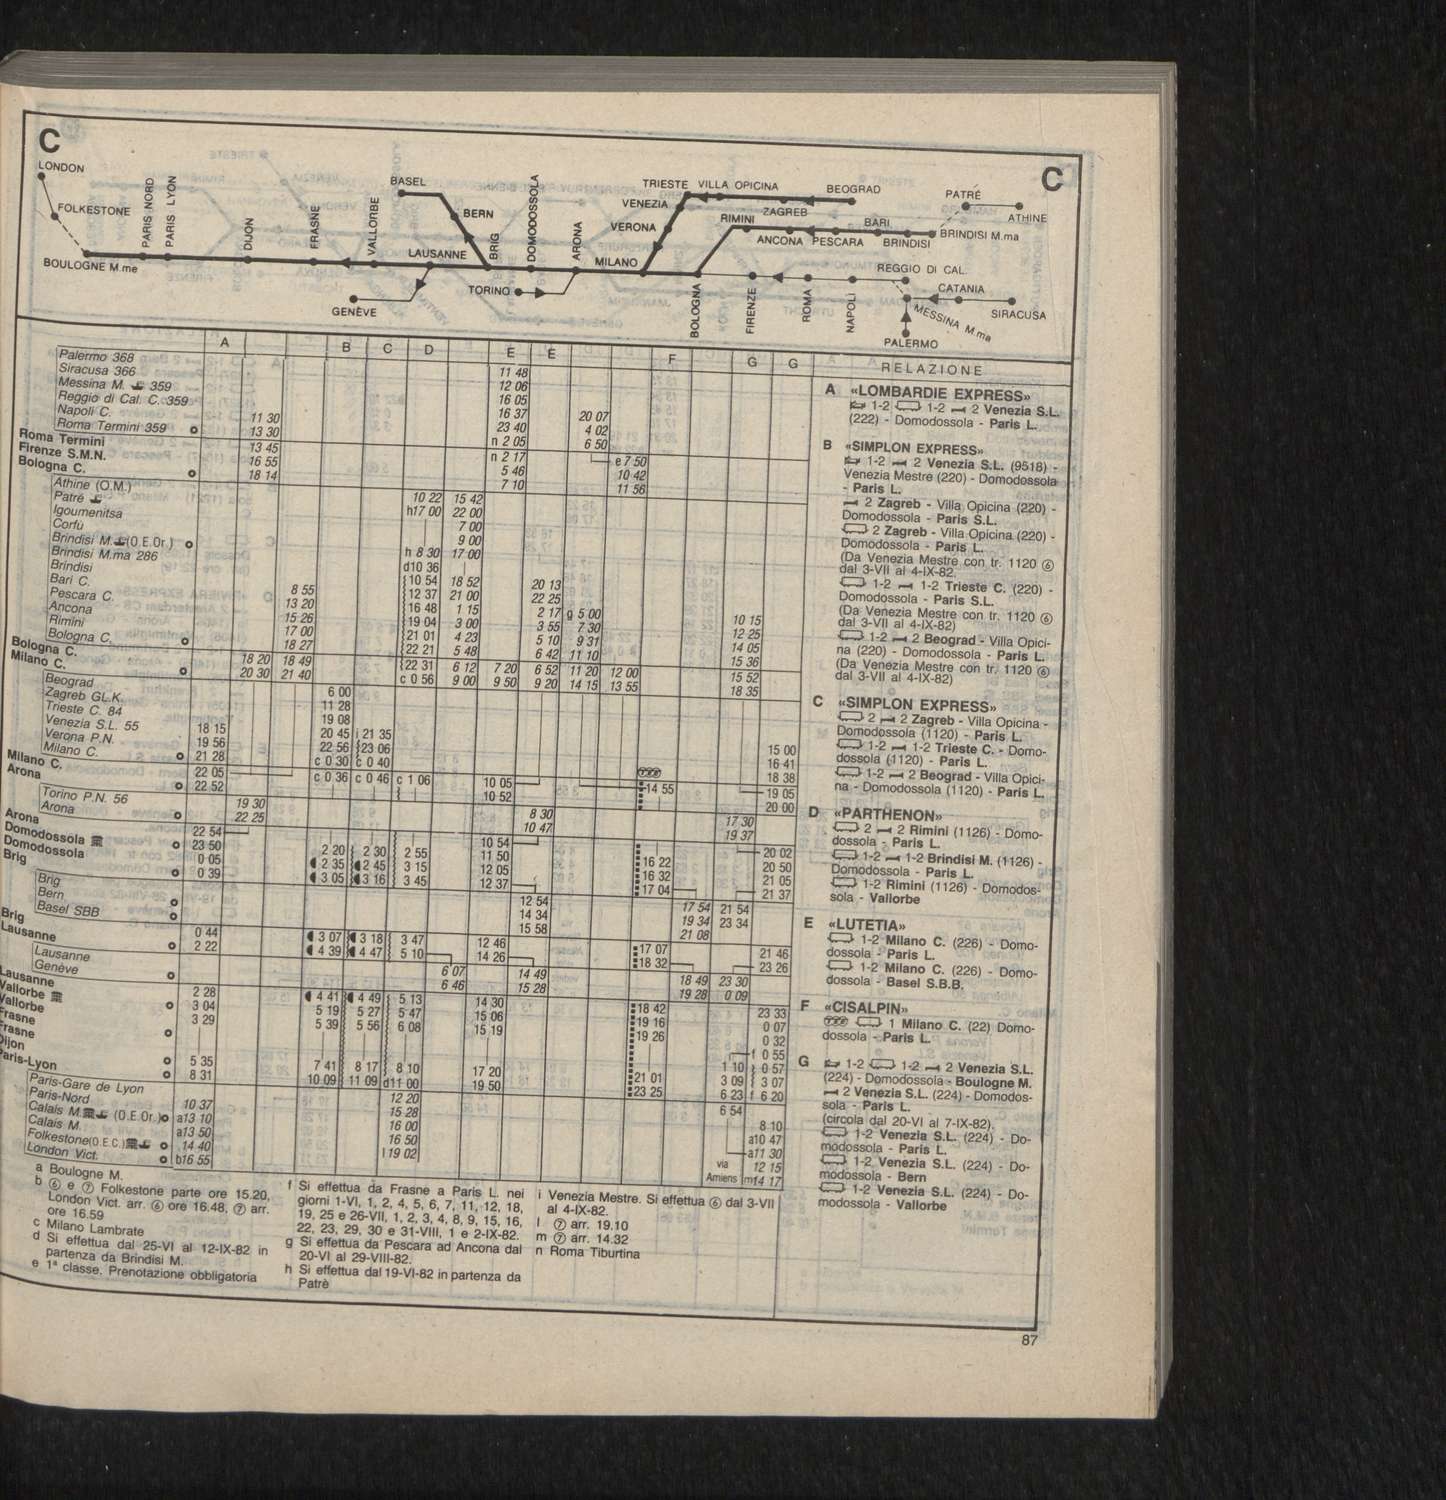 C
C
LONDON
FOLKESTONE
BOULOGNE M.me
PARIS NORD
PARIS LYON
DIJON
FRASNE
VALLORBE
BASEL
BERN
LAUSANNE
GENÈVE
BRIG
DOMODOSSOLA
TORINO
ARONA
MILANO
TRIESTE VILLA OPICINA
VENEZIA
VERONA
ZAGREB
BEOGRAD
RIMINI
ANCONA PESCARA
BARI
BRINDISI
BRINDISI M.ma
PATRÉ
ATHINE
BOLOGNA
FIRENZE
ROMA
NAPOLI
REGGIO DI CAL.
CATANIA
SIRACUSA
MESSINA M.ma
PALERMO
A B C D E E F G G
RELAZIONE
Palermo 368 11 48
Siracusa 366 12 06
Messina M. 359 16 05
Reggio di Cal. C. 359 16 37
Napoli C. 11 30 23 40 20 07
Roma Termini 359 13 30 n 2 05 4 02
6 50
Roma Termini 13 45 n 2 17 e 7 50
Firenze S.M.N. 16 55 5 46 10 42
Bologna C. 18 14 7 10 11 56
Athine (O.M.) 10 22 15 42
Patré h17 00 22 00
Igoumenitsa 7 00
Corfù 9 00
Brindisi M. (O.E.Or.) h 8 30 17 00
Brindisi M.ma 286 d10 36
Brindisi 10 54 18 52 20 13
Bari C. 8 55 12 37 21 00 22 25
Pescara C. 13 20 16 48 1 15 2 17 g 5 00 10 15
Ancona 15 26 19 04 3 00 3 55 7 30 12 25
Rimini 17 00 21 01 4 23 5 10 9 31 14 05
Bologna C. 18 27 22 21 5 48 6 42 11 10 15 36
Bologna C. 18 20 18 49 22 31 6 12 7 20 6 52 11 20 12 00 15 52
Milano C. 20 30 21 40 c 0 56 9 00 9 50 9 20 14 15 13 55 18 35
Beograd 6 00
Zagreb GL.K. 11 28
Trieste C. 84 19 08
Venezia S.L. 55 18 15 20 45 i 21 35 15 00
Verona P.N. 19 56 22 56 23 06 16 41
Milano C. 21 28 c 0 30 c 0 40 18 38
Milano C. 22 05 c 0 36 c 0 46 c 1 06 10 05 14 55 19 05
Arona 22 52 10 52 20 00
Torino P.N. 56 19 30 8 30 17 30
Arona 22 25 10 47 19 37
Arona 22 54 10 54 20 02
Domodossola 23 50 2 20 2 30 2 55 11 50 16 22 20 50
Domodossola 0 05 2 35 2 45 3 15 12 05 16 32 21 05
Brig 0 39 3 05 3 16 3 45 12 37 17 04 21 37
Brig 12 54 17 54 21 54
Bern 14 34 19 34 23 34
Basel SBB 15 58 21 08
Brig 0 44 3 07 3 18 3 47 12 46 17 07 21 46
Lausanne 2 22 4 39 4 47 5 10 14 26 18 32 23 26
Lausanne 6 07 14 49 18 49 23 30
Genève 6 46 15 28 19 28 0 09
Lausanne 2 28 4 41 4 49 5 13 14 30 18 42 23 33
Vallorbe 3 04 5 19 5 27 5 47 15 06 19 16 0 07
Vallorbe 3 29 5 39 5 56 6 08 15 19 19 26 0 32
Frasne f 0 55
Frasne 1 10 0 57
Dijon 5 35 7 41 8 17 8 10 17 20 21 01 3 09 3 07
Paris-Lyon 8 31 10 09 11 09 d11 00 19 50 23 25 6 23 f 6 20
Paris-Gare de Lyon 12 20 6 54
Paris-Nord 10 37 15 28 8 10
Calais M. (O.E.Or.) a13 10 16 00 a10 47
Calais M. a13 50 16 50 a11 30
Folkestone (O.E.C.) 14 40 l 19 02 via 12 15
London Vict. b16 55 Amiens m14 17
a Boulogne M.
b ⑥ e ⑦ Folkestone parte ore 15.20,
London Vict. arr. ⑥ ore 16.48, ⑦ arr.
ore 16.59
c Milano Lambrate
d Si effettua dal 25-VI al 12-IX-82 in
partenza da Brindisi M.
e 1ª classe. Prenotazione obbligatoria
f Si effettua da Frasne a Paris L. nei
giorni 1-VI, 1, 2, 4, 5, 6, 7, 11, 12, 18,
19, 25 e 26-VII, 1, 2, 3, 4, 8, 9, 15, 16,
22, 23, 29, 30 e 31-VIII, 1 e 2-IX-82.
g Si effettua da Pescara ad Ancona dal
20-VI al 29-VIII-82.
h Si effettua dal 19-VI-82 in partenza da
Patrè
i Venezia Mestre. Si effettua ⑥ dal 3-VII
al 4-IX-82.
l ⑦ arr. 19.10
m ⑦ arr. 14.32
n Roma Tiburtina
A «LOMBARDIE EXPRESS»
1-2 1-2 2 Venezia S.L.
(222) - Domodossola - Paris L.
B «SIMPLON EXPRESS»
1-2 2 Venezia S.L. (9518) -
Venezia Mestre (220) - Domodossola
- Paris L.
2 Zagreb - Villa Opicina (220) -
Domodossola - Paris S.L.
2 Zagreb - Villa Opicina (220) -
Domodossola - Paris L.
(Da Venezia Mestre con tr. 1120 ⑥
dal 3-VII al 4-IX-82.
1-2 1-2 Trieste C. (220) -
Domodossola - Paris S.L.
(Da Venezia Mestre con tr. 1120 ⑥
dal 3-VII al 4-IX-82)
1-2 2 Beograd - Villa Opici-
na (220) - Domodossola - Paris L.
(Da Venezia Mestre con tr. 1120 ⑥
dal 3-VII al 4-IX-82)
C «SIMPLON EXPRESS»
2 2 Zagreb - Villa Opicina -
Domodossola (1120) - Paris L.
1-2 1-2 Trieste C. - Domo-
dossola (1120) - Paris L.
1-2 2 Beograd - Villa Opici-
na - Domodossola (1120) - Paris L.
D «PARTHENON»
2 2 Rimini (1126) - Domo-
dossola - Paris L.
1-2 1-2 Brindisi M. (1126) -
Domodossola - Paris L.
1-2 Rimini (1126) - Domodos-
sola - Vallorbe
E «LUTETIA»
1-2 Milano C. (226) - Domo-
dossola - Paris L.
1-2 Milano C. (226) - Domo-
dossola - Basel S.B.B.
F «CISALPIN»
1 Milano C. (22) Domo-
dossola - Paris L.
G 1-2 1-2 2 Venezia S.L.
(224) - Domodossola - Boulogne M.
2 Venezia S.L. (224) - Domodos-
sola - Paris L.
(circola dal 20-VI al 7-IX-82).
1-2 Venezia S.L. (224) - Do-
modossola - Paris L.
1-2 Venezia S.L. (224) - Do-
modossola - Bern
1-2 Venezia S.L. (224) - Do-
modossola - Vallorbe
87